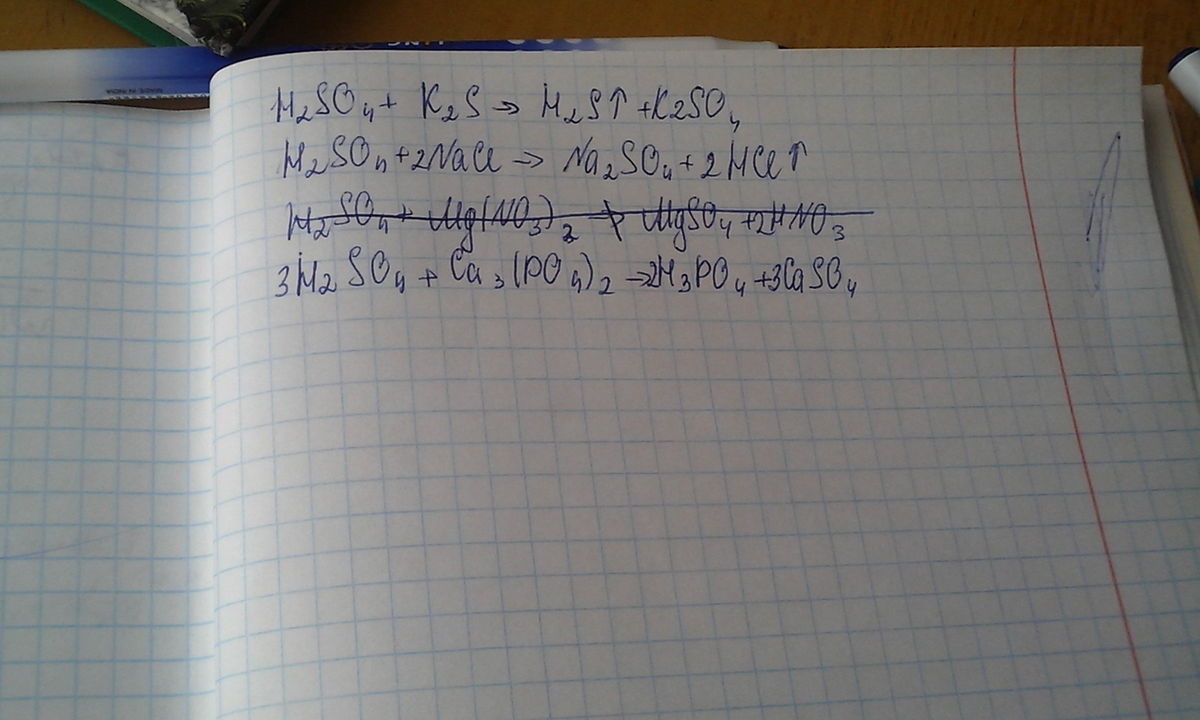 H₂SO₄ + K₂S → H₂S↑ + K₂SO₄
H₂SO₄ + 2NaCl → Na₂SO₄ + 2HCl↑
H₂SO₄ + Mg(NO₃)₂ ↛ MgSO₄ + 2HNO₃
3H₂SO₄ + Ca₃(PO₄)₂ → 2H₃PO₄ + 3CaSO₄
MADE IN INDIA